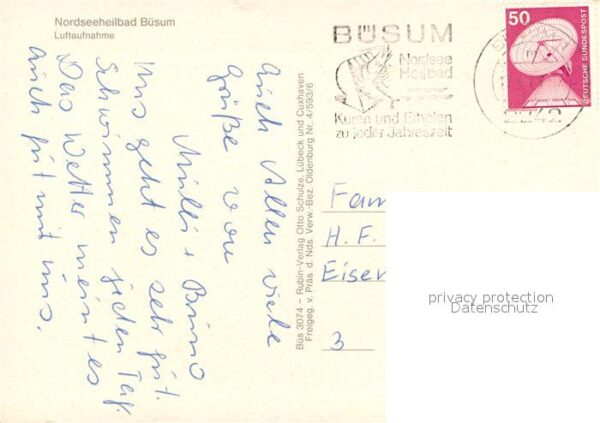 Nordseeheilbad Büsum
Luftaufnahme
Euch Allen viele
Grüße von
Mülli + Bruno
Uns geht es sehr gut.
Schwimmen jeden Tag.
Das Wetter meint es
auch gut mit uns.
Büs 3074 – Rubin-Verlag Otto Schulze, Lübeck und Cuxhaven
Freigeg. v. Präs. d. Nds. Verw.-Bez. Oldenburg Nr. 4/593/6
BÜSUM
Nordsee
Heilbad
Kuren und Erholen
zu jeder Jahreszeit
2242
50
DEUTSCHE BUNDESPOST
Fam
H. F.
Eiser
3
privacy protection
Datenschutz